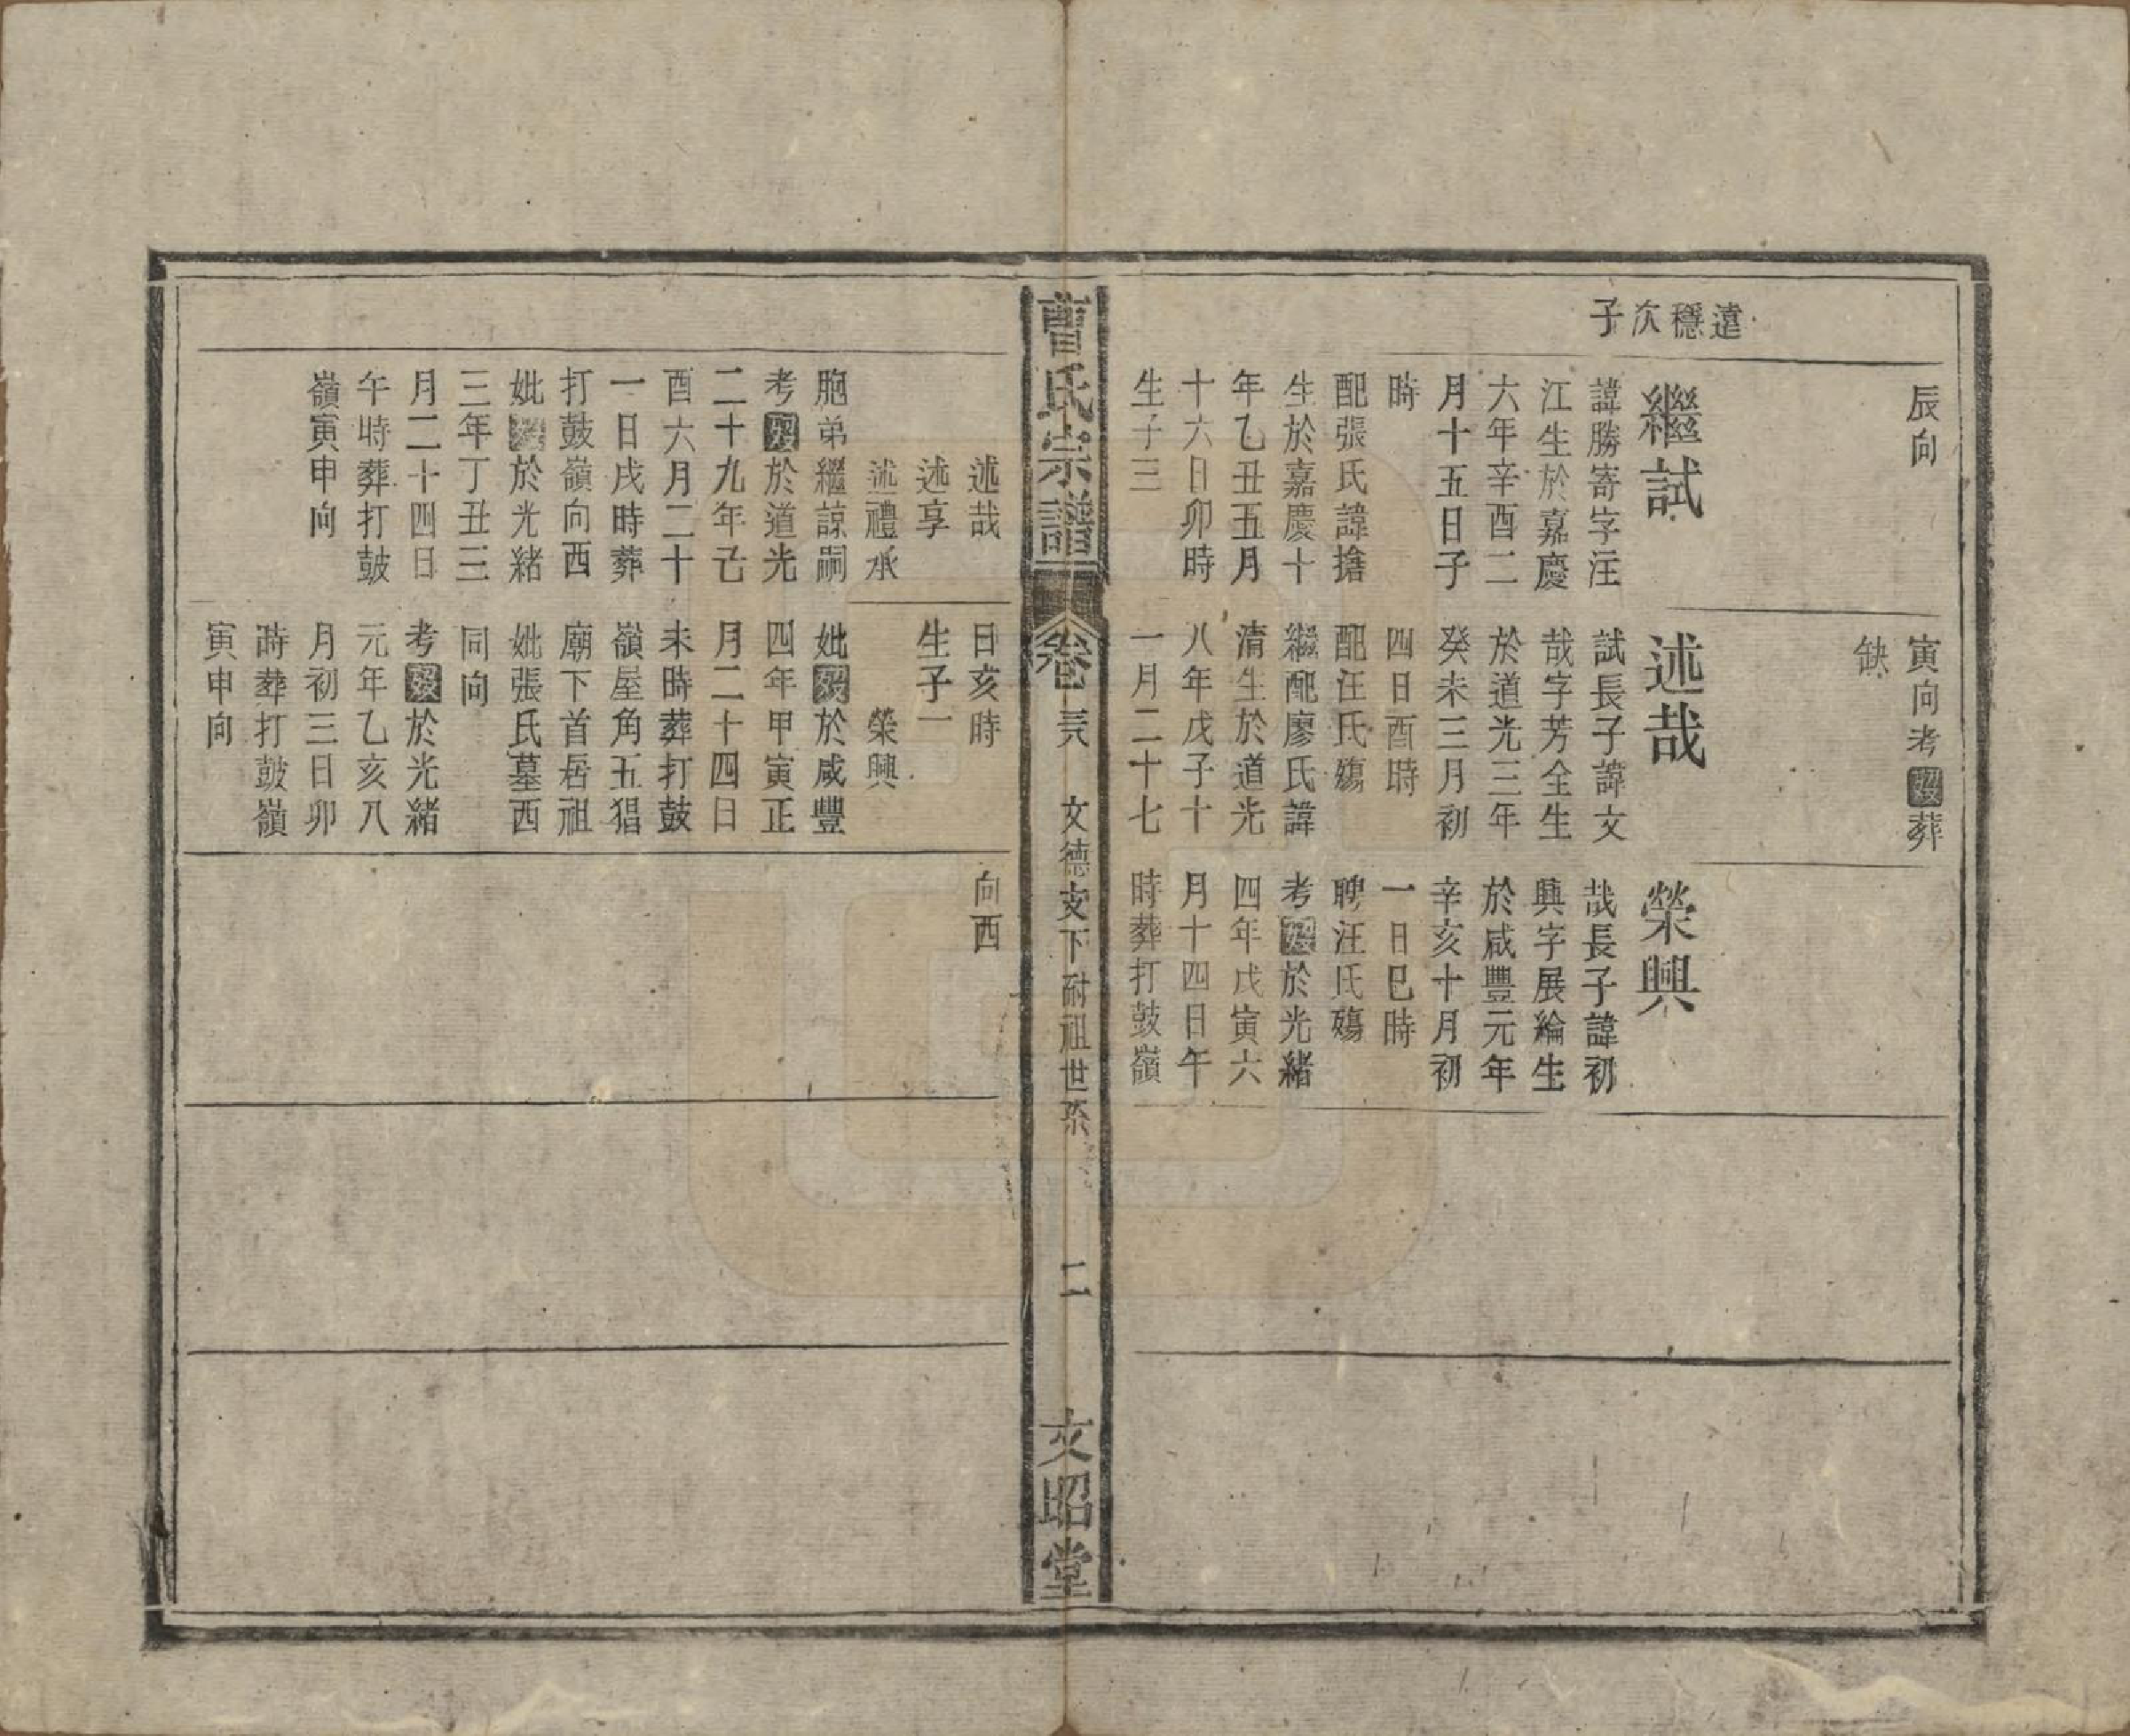 遠穩次子
辰向
繼試
諱勝寄字汪
江生於嘉慶
六年辛酉二
月十五日子
時
配張氏諱搶
生於嘉慶十
年乙丑五月
十六日卯時
生子三
寅向考歿葬
缺
述哉
試長子諱文
哉字芳全生
於道光三年
癸未三月初
四日酉時
配汪氏殤
繼配廖氏諱
清生於道光
八年戊子十
一月二十七
榮興
哉長子諱初
興字展綸生
於咸豐元年
辛亥十月初
一日巳時
聘汪氏殤
考歿於光緒
四年戊寅六
月十四日午
時葬打鼓嶺
曹氏宗譜
卷三八
文德支下耐祖世系
二
文昭堂
述哉
述享
述禮承
胞弟繼諒嗣
考歿於道光
二十九年己
酉六月二十
一日戌時葬
打鼓嶺向西
妣歿於光緒
三年丁丑三
月二十四日
午時葬打鼓
嶺寅申向
日亥時
生子一
榮興
妣歿於咸豐
四年甲寅正
月二十四日
未時葬打鼓
嶺屋角五猖
廟下首居祖
妣張氏墓西
同向
考歿於光緒
元年乙亥八
月初三日卯
時葬打鼓嶺
寅申向
向西